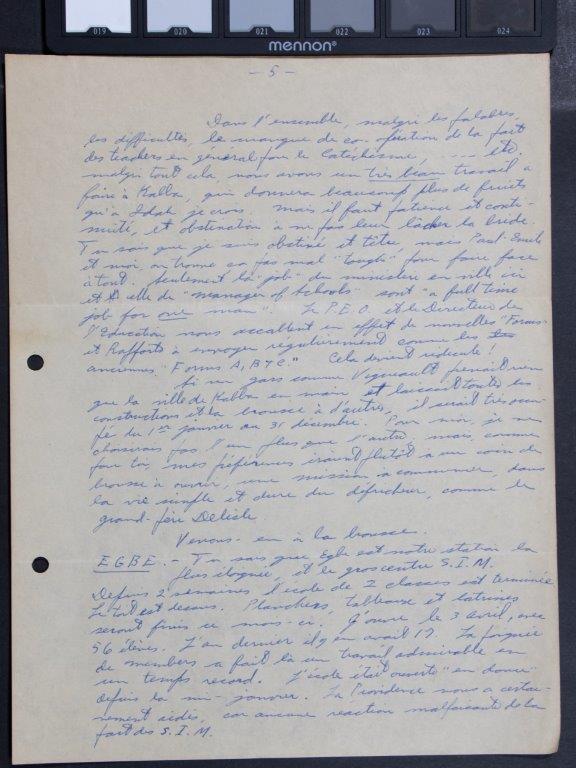 019 020 021 022 023 024
mennon®
- 5 -
Dans l'ensemble, malgré les palabres,
les difficultés, le manque de coopération de la part
des teachers en général pour le Catéchisme, ---- etc.
malgré tout cela, nous avons un très beau travail à
faire à Kabba, qui donnera beaucoup plus de fruits
qu'à Idah je crois. Mais il faut patience et conti-
nuité, et obstination à ne pas leur lâcher la bride.
Tu sais que je suis obstiné et tête, mais Paul-Emile
et moi, on trouve ça pas mal "tough" pour faire face
à tout. Seulement la "job" du ministère en ville ici
et celle de "manager of Schools" sont "a full time
job for one man". Le P.E.O. et le Directeur de
l'Education nous accablent en effet de nouvelles "Forms"
et Rapports à envoyer régulièrement comme les
anciennes "Forms A, B & C." Cela devient ridicule!
Si un gars comme Vigneault prenait rien
que la ville de Kabba en main et laissait toutes les
constructions et la brousse à d'autres, il serait très occu-
pé du 1er janvier au 31 décembre. Pour moi, je ne
choisirais pas l'un plus que l'autre, mais, comme
pour toi, mes préférences iraient plutôt à un coin de
brousse à ouvrir, une mission à commencer, dans
la vie simple et dure du défricheur, comme le
grand-père Delisle.
Venons-en à la brousse.
EGBE. - Tu sais que Egbe est notre station la
plus éloignée, et le gros centre S.I.M.
Depuis 2 semaines, l'école de 2 classes est terminée
Le toit est dessus. Planchers, tableaux et latrines
seront finis ce mois-ci. J'ouvre le 3 avril, avec
56 élèves. L'an dernier il y en avait 19. La poignée
de members a fait là un travail admirable en
un temps record. L'école était ouverte "en douce"
depuis la mi-janvier. La Providence nous a certai-
nement aidés, car aucune réaction malfaisante de la
part des S.I.M.